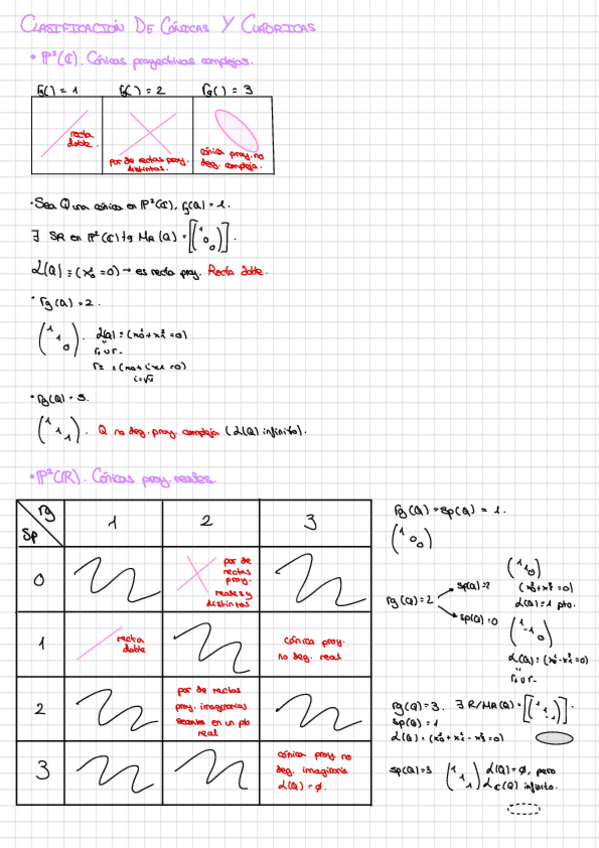 CLASIFICACIÓN DE CÓNICAS Y CUÁDRICAS
• P²(C). Cónicas proyectivas complejas.
rg( ) = 1 rg( ) = 2 rg( ) = 3
recta doble.
par de rectas proy. distintas.
cónica proy. no deg. compleja.
• Sea Q una cónica en P²(C), rg(Q) = 1.
∃ SR en P²(C) tq M_R(Q) = [(1 0 0)].
L(Q) ≡ (x₀² = 0) → es recta proy. Recta doble.
• rg(Q) = 2.
(1 1 0). L(Q) ≡ (x₀² + x₁² = 0)
r₁ ∪ r₂
r₂ ≡ (x₀ + i·x₁ = 0)
i = √-1
• rg(Q) = 3.
(1 1 1). Q no deg. proy. compleja (L(Q) infinito).
• P²(R). Cónicas proy. reales.
rg 1 2 3
Sp
0 par de rectas proy. reales y distintas
1 recta doble cónica proy. no deg. real
2 par de rectas proy. imaginarias secantes en un pto real
3 cónica proy. no deg. imaginaria L(Q) = ∅.
rg(Q) = sp(Q) = 1.
(1 0 0)
rg(Q) = 2
sp(Q) = 2 (1 1 0)
(x₀² + x₁² = 0)
L(Q) = 1 pto.
sp(Q) = 0 (1 -1 0)
L(Q) = (x₀² - x₁² = 0)
r₁ ∪ r₂
rg(Q) = 3. ∃ R / M_R(Q) = [(1 1 -1)].
sp(Q) = 1
L(Q) = (x₀² + x₁² - x₂² = 0)
sp(Q) = 3 (1 1 1) L(Q) = ∅, pero
L_C(Q) infinito.